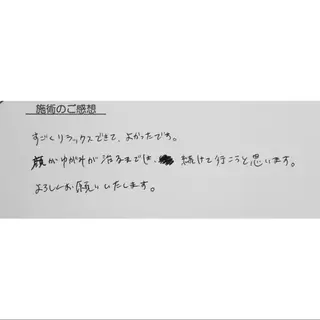 施術のご感想
すごくリラックスできて、よかったです。
顔がゆがみが治るまでは、続けて行こうと思います。
よろしくお願いいたします。